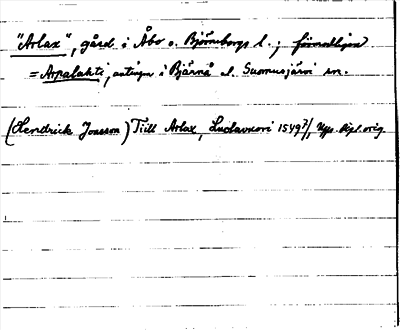 "Arlax", gård i Åbo o. Björneborgs l.; förmodligen
= Arpalahti, antingen i Bjärnå el. Suomusjärvi sn.
(Hendrick Jonsson) Tiill Arlax, 1549?/, Ups. dipl. orig.